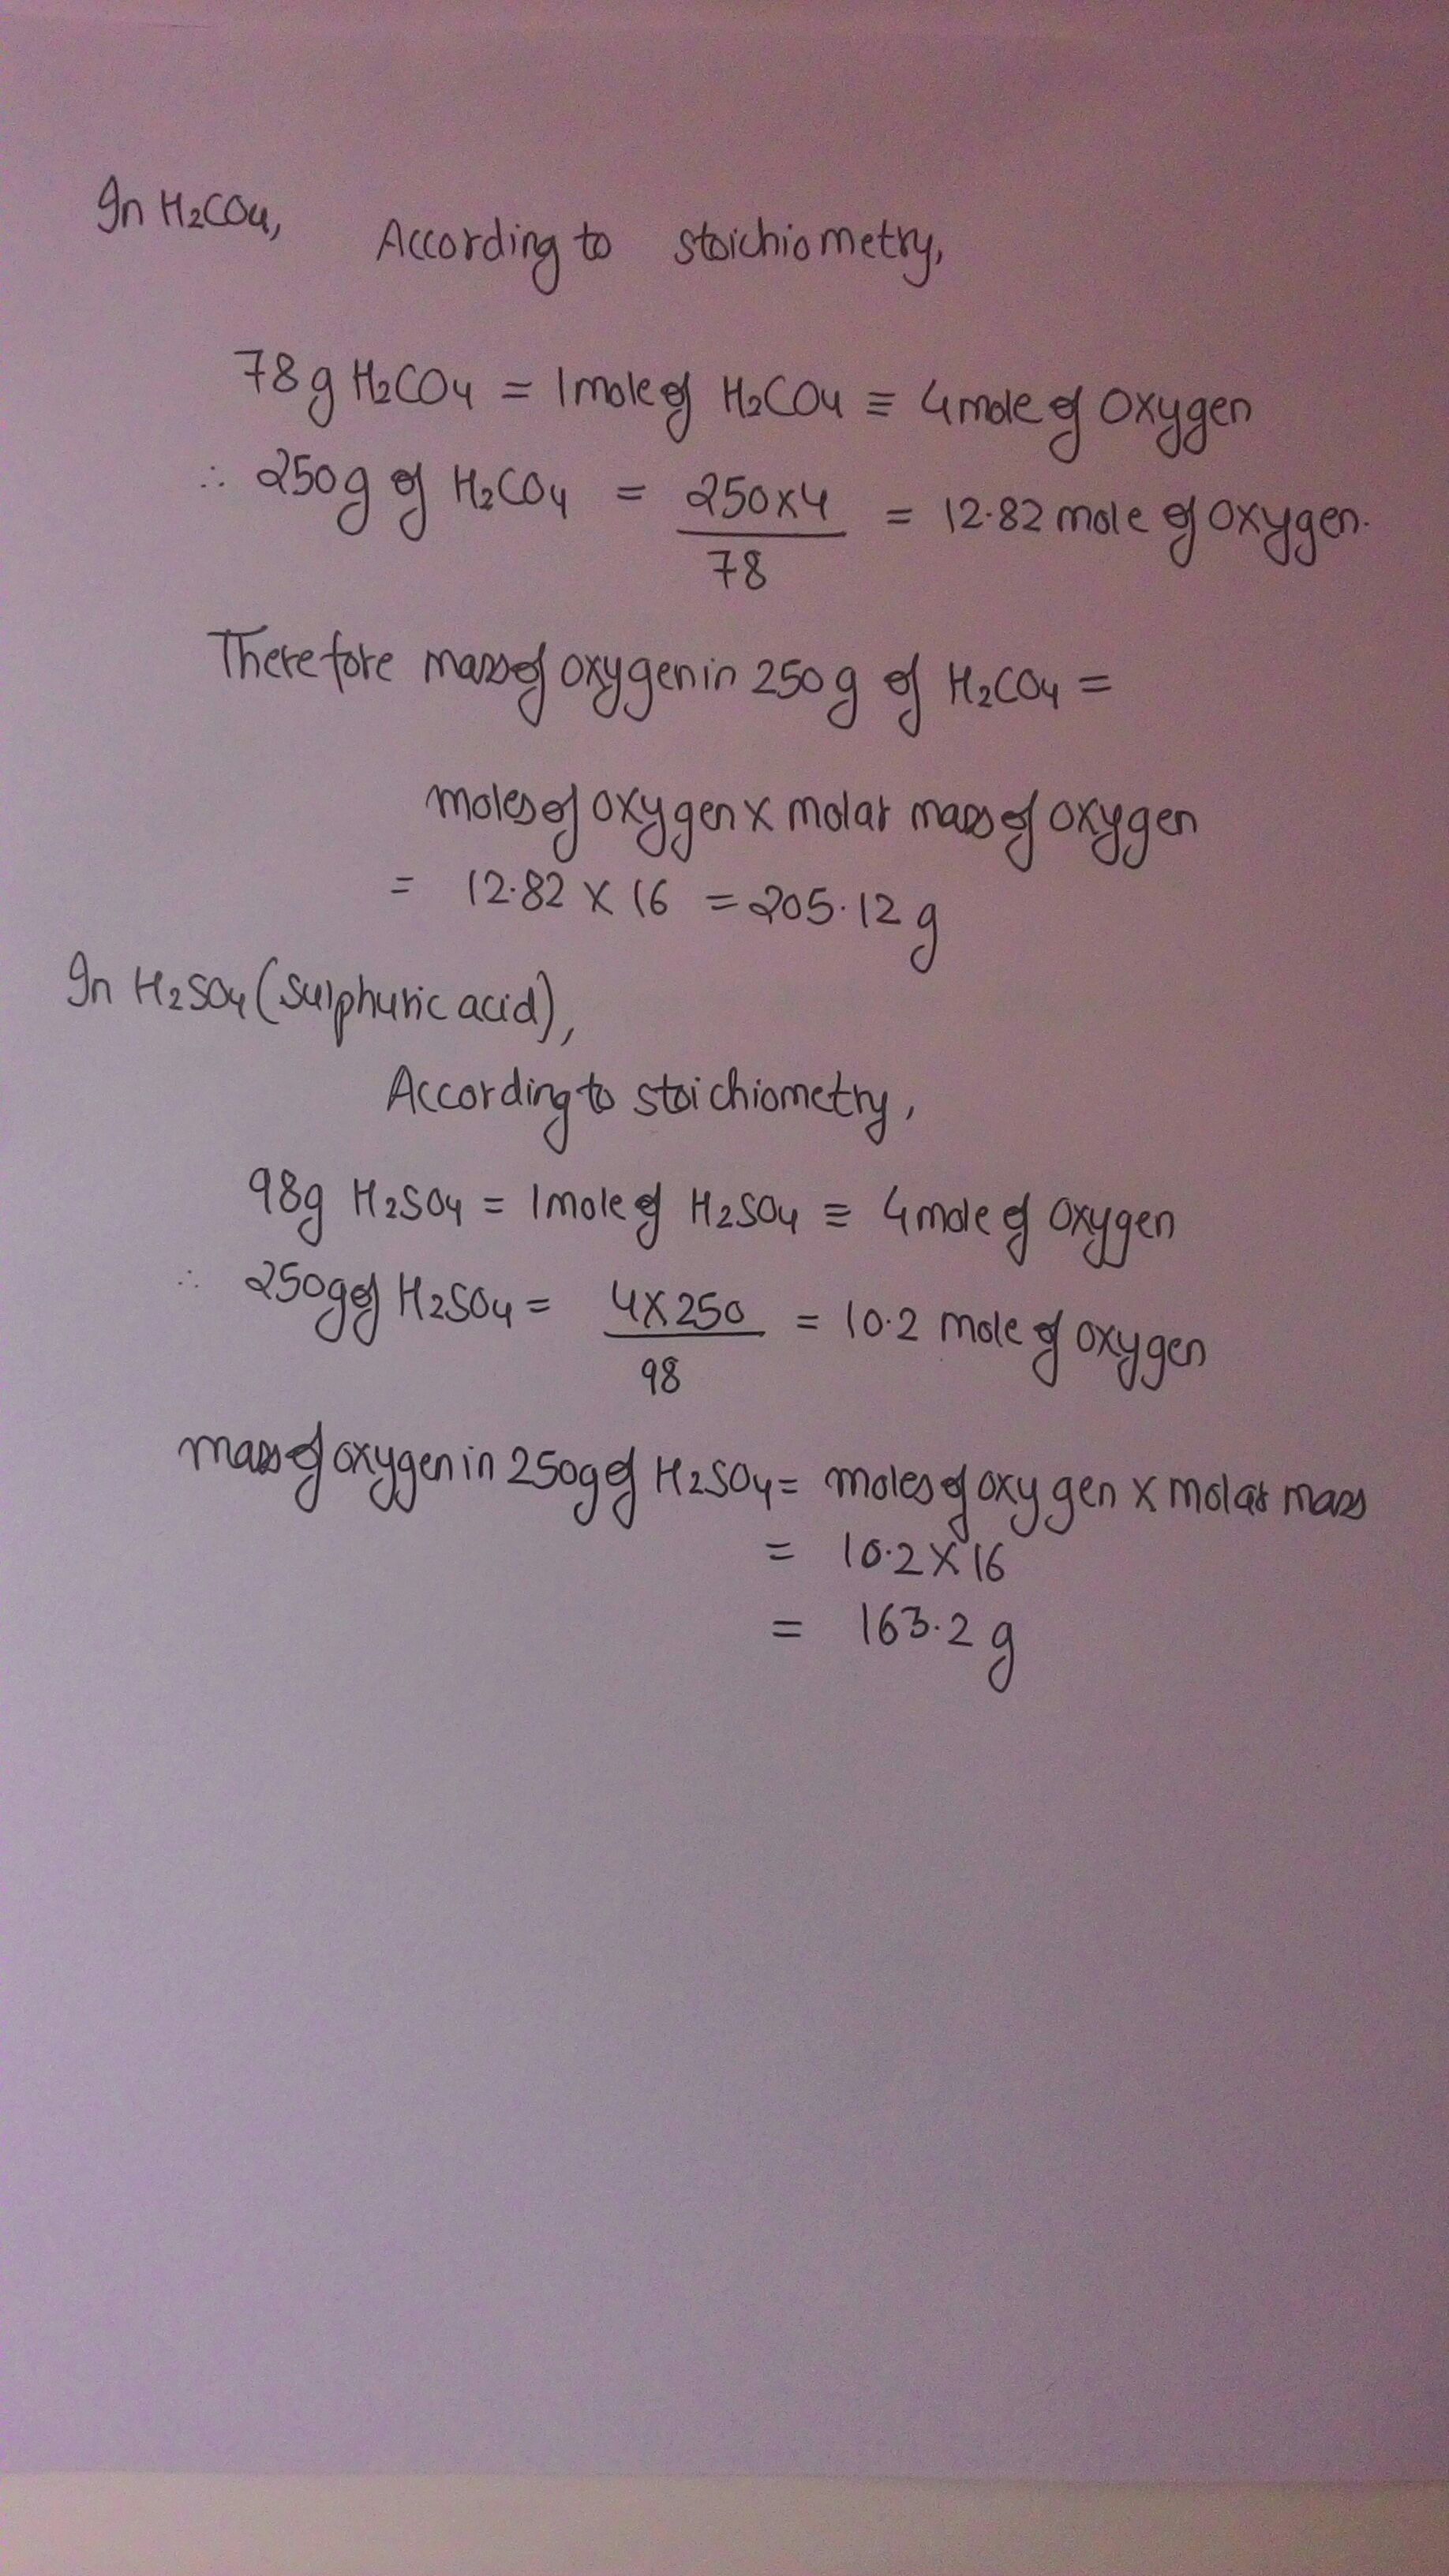 In H₂CO₄,
According to stoichiometry,
78g H₂CO₄ = 1mole of H₂CO₄ ≡ 4mole of Oxygen
∴ 250g of H₂CO₄ = 250x4/78 = 12.82 mole of Oxygen.
Therefore mass of oxygen in 250g of H₂CO₄ =
moles of oxygen x molar mass of oxygen
= 12.82 x 16 = 205.12 g
In H₂SO₄ (Sulphuric acid),
According to stoichiometry,
98g H₂SO₄ = 1mole of H₂SO₄ ≡ 4mole of Oxygen
∴ 250g of H₂SO₄ = 4x250/98 = 10.2 mole of oxygen
mass of oxygen in 250g of H₂SO₄ = moles of oxygen x molar mass
= 10.2 x 16
= 163.2 g